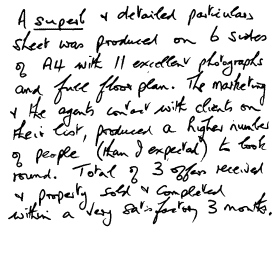 A superb & detailed particulars
sheet was produced on 6 sides
of A4 with 11 excellent photographs
and full floor plan. The marketing
& the agents contact with clients on
their list, produced a higher number
of people (than I expected) to look
round. Total of 3 offers received
& property sold & completed
within a very satisfactory 3 months.